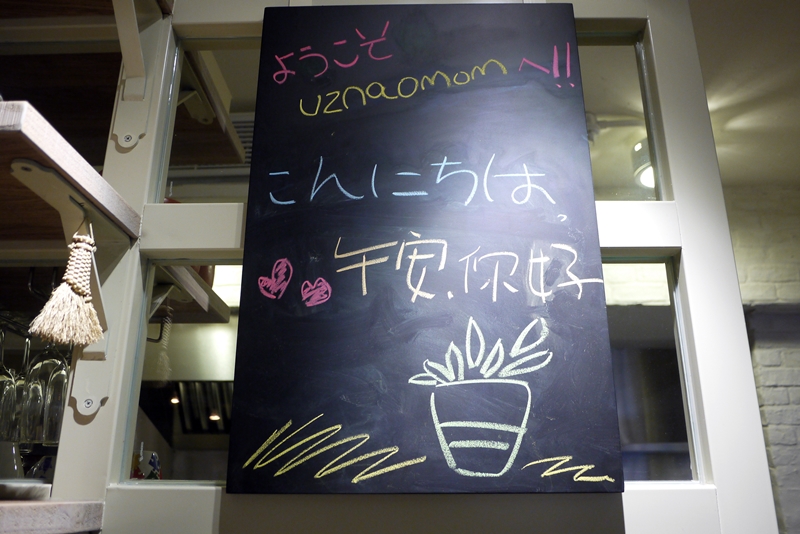 ようこそ
uznaomom へ!!
こんにちは
午安.你好